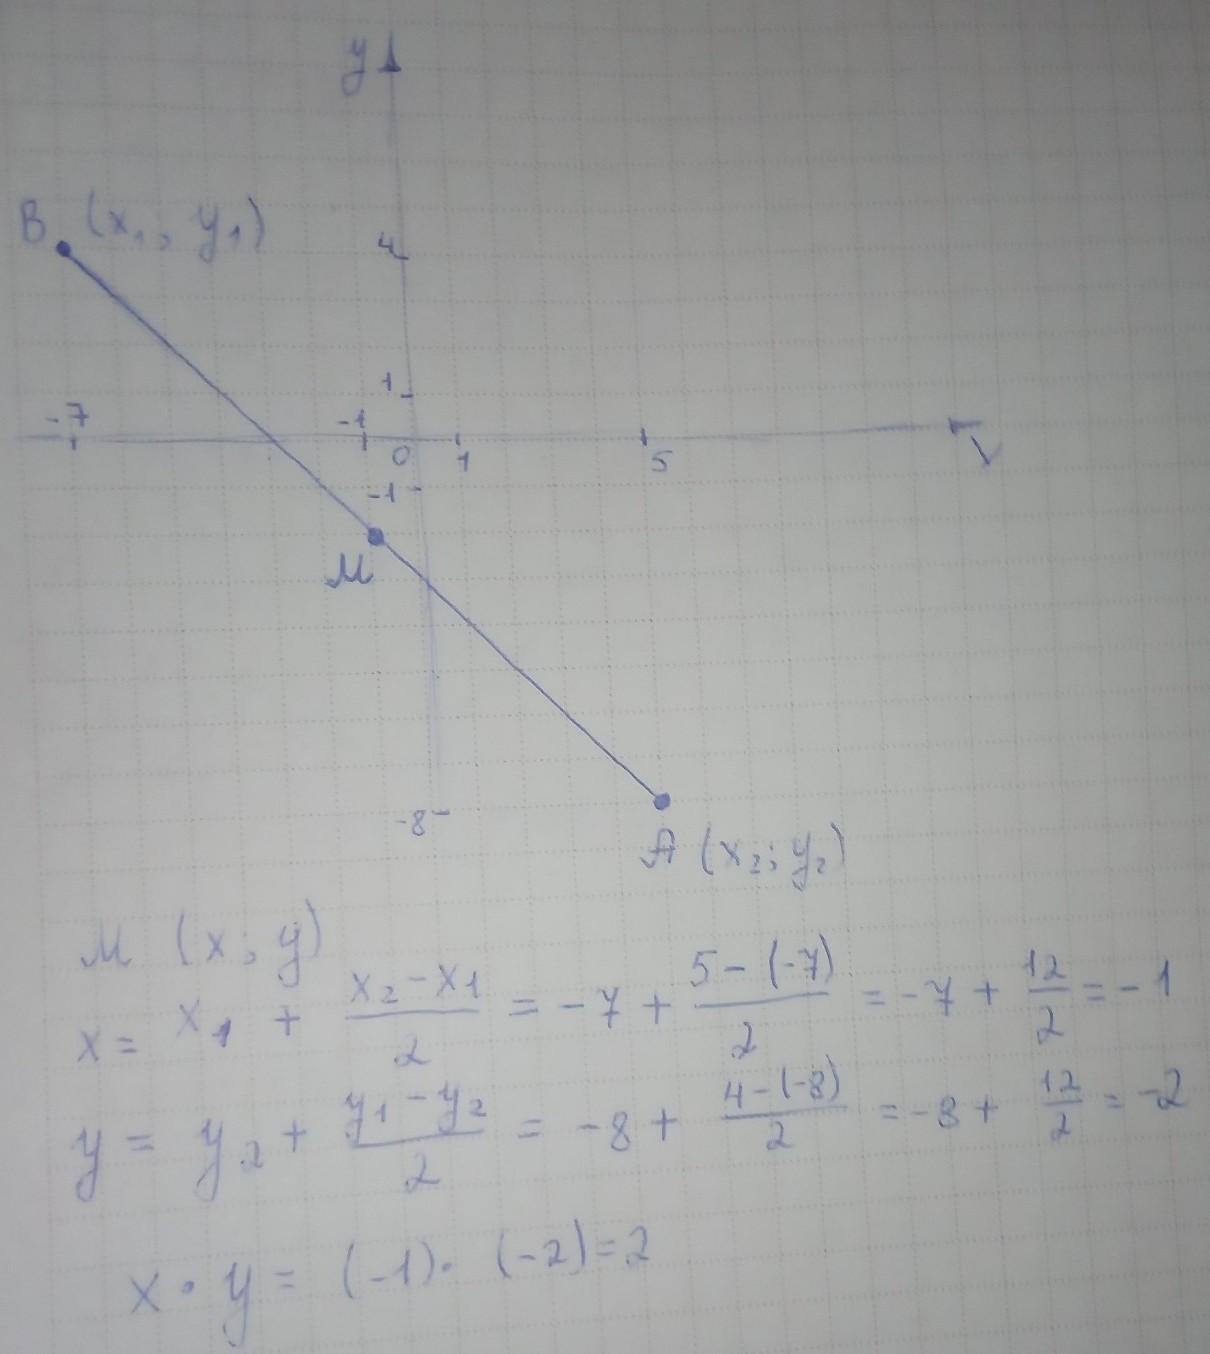 y
B (x₁, y₁)
4
1
-7 -1
0 1 5 x
-1
M
-8
A (x₂; y₂)
M (x; y)
x = x₁ + (x₂ - x₁)/2 = -7 + (5 - (-7))/2 = -7 + 12/2 = -1
y = y₂ + (y₁ - y₂)/2 = -8 + (4 - (-8))/2 = -8 + 12/2 = -2
x · y = (-1) · (-2) = 2